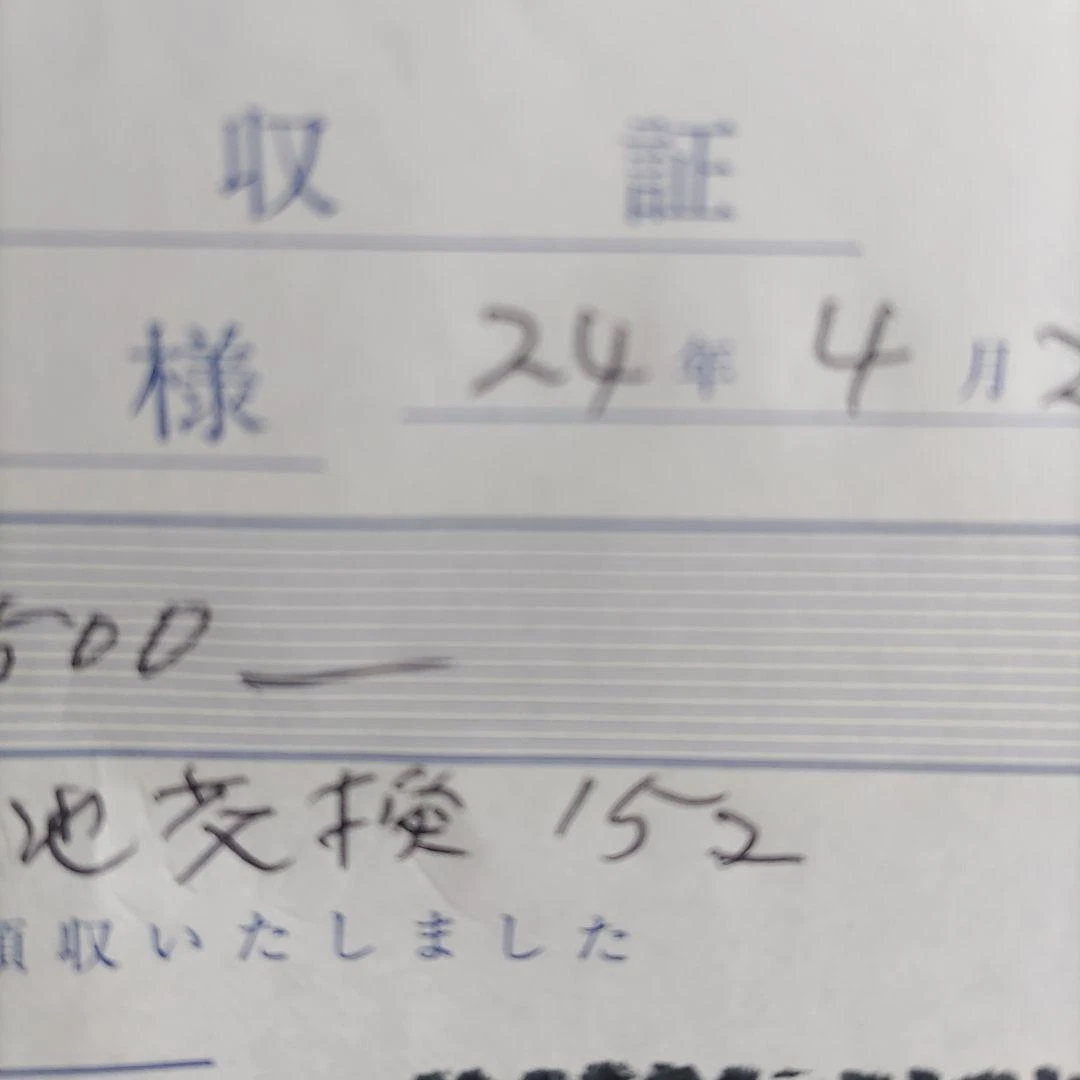 収 証
様 24年 4月 2
500
池交換 152
領収いたしました